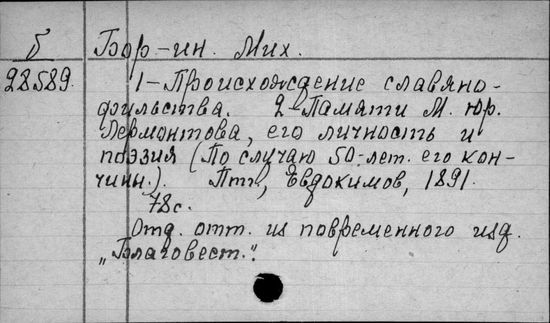 Б
28589.
Бор-ин. Мих.
1-Происхождение славяно-
фильства. 2-Памяти М. Юр.
Лермонтова, его личность и
поэзия (По случаю 50-лет. его кон-
чины.). Птг., Евдокимов, 1891.
78с.
Отд. отт. из повременного изд.
„Благовест.".